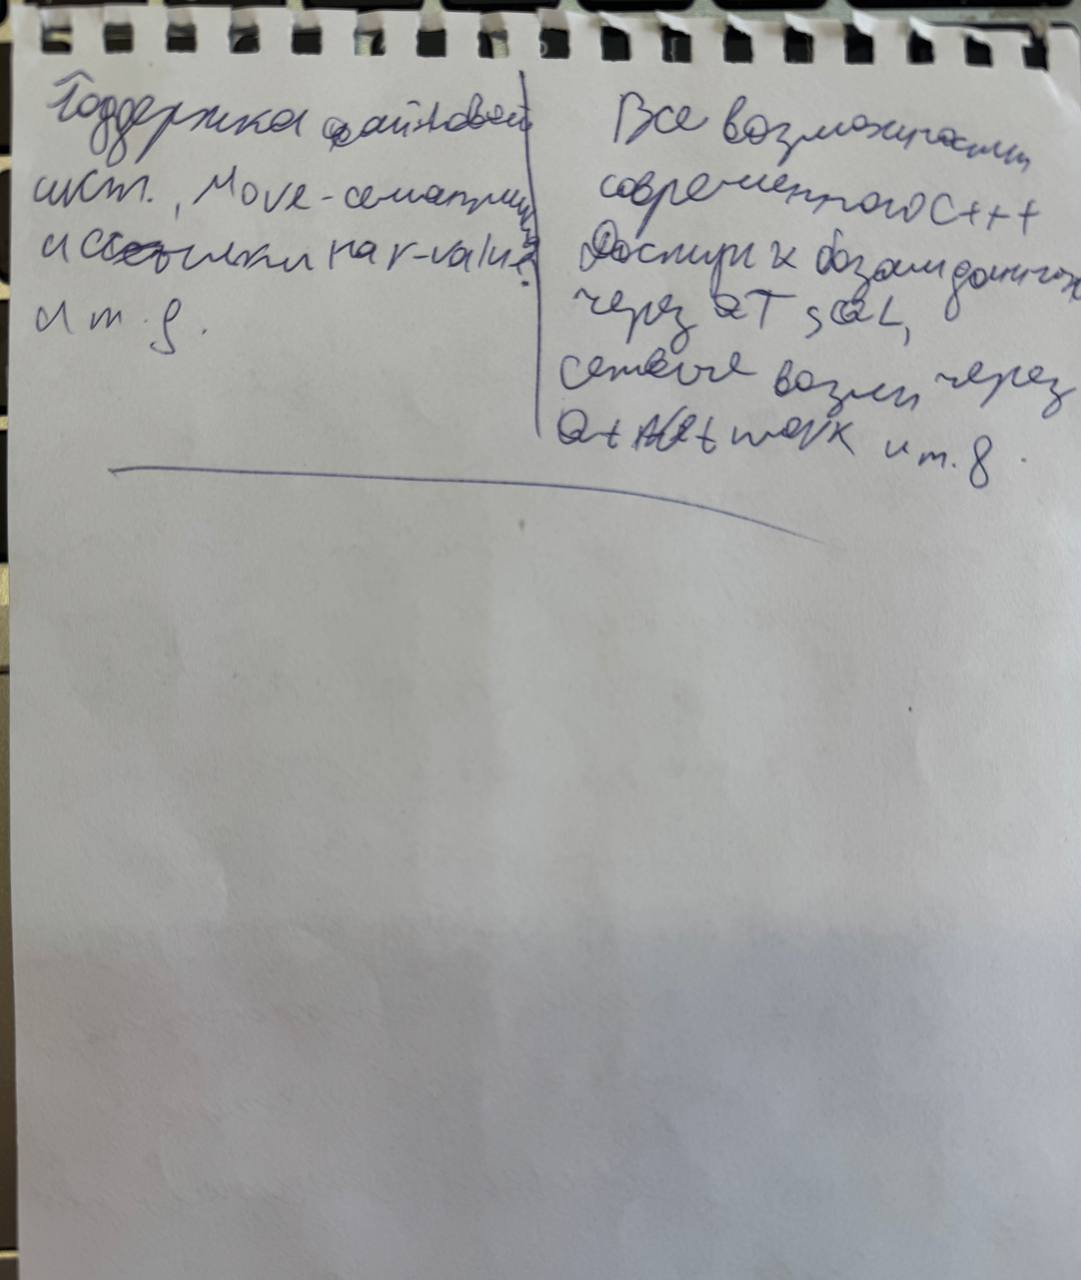 Поддержка файловой
сист., Move-семантика
и ссылки на r-value
и т.д.
Все возможности
современного C++
Доступ к базам данных
через QT SQL,
сетевые возм через
Qt Network и т.д.